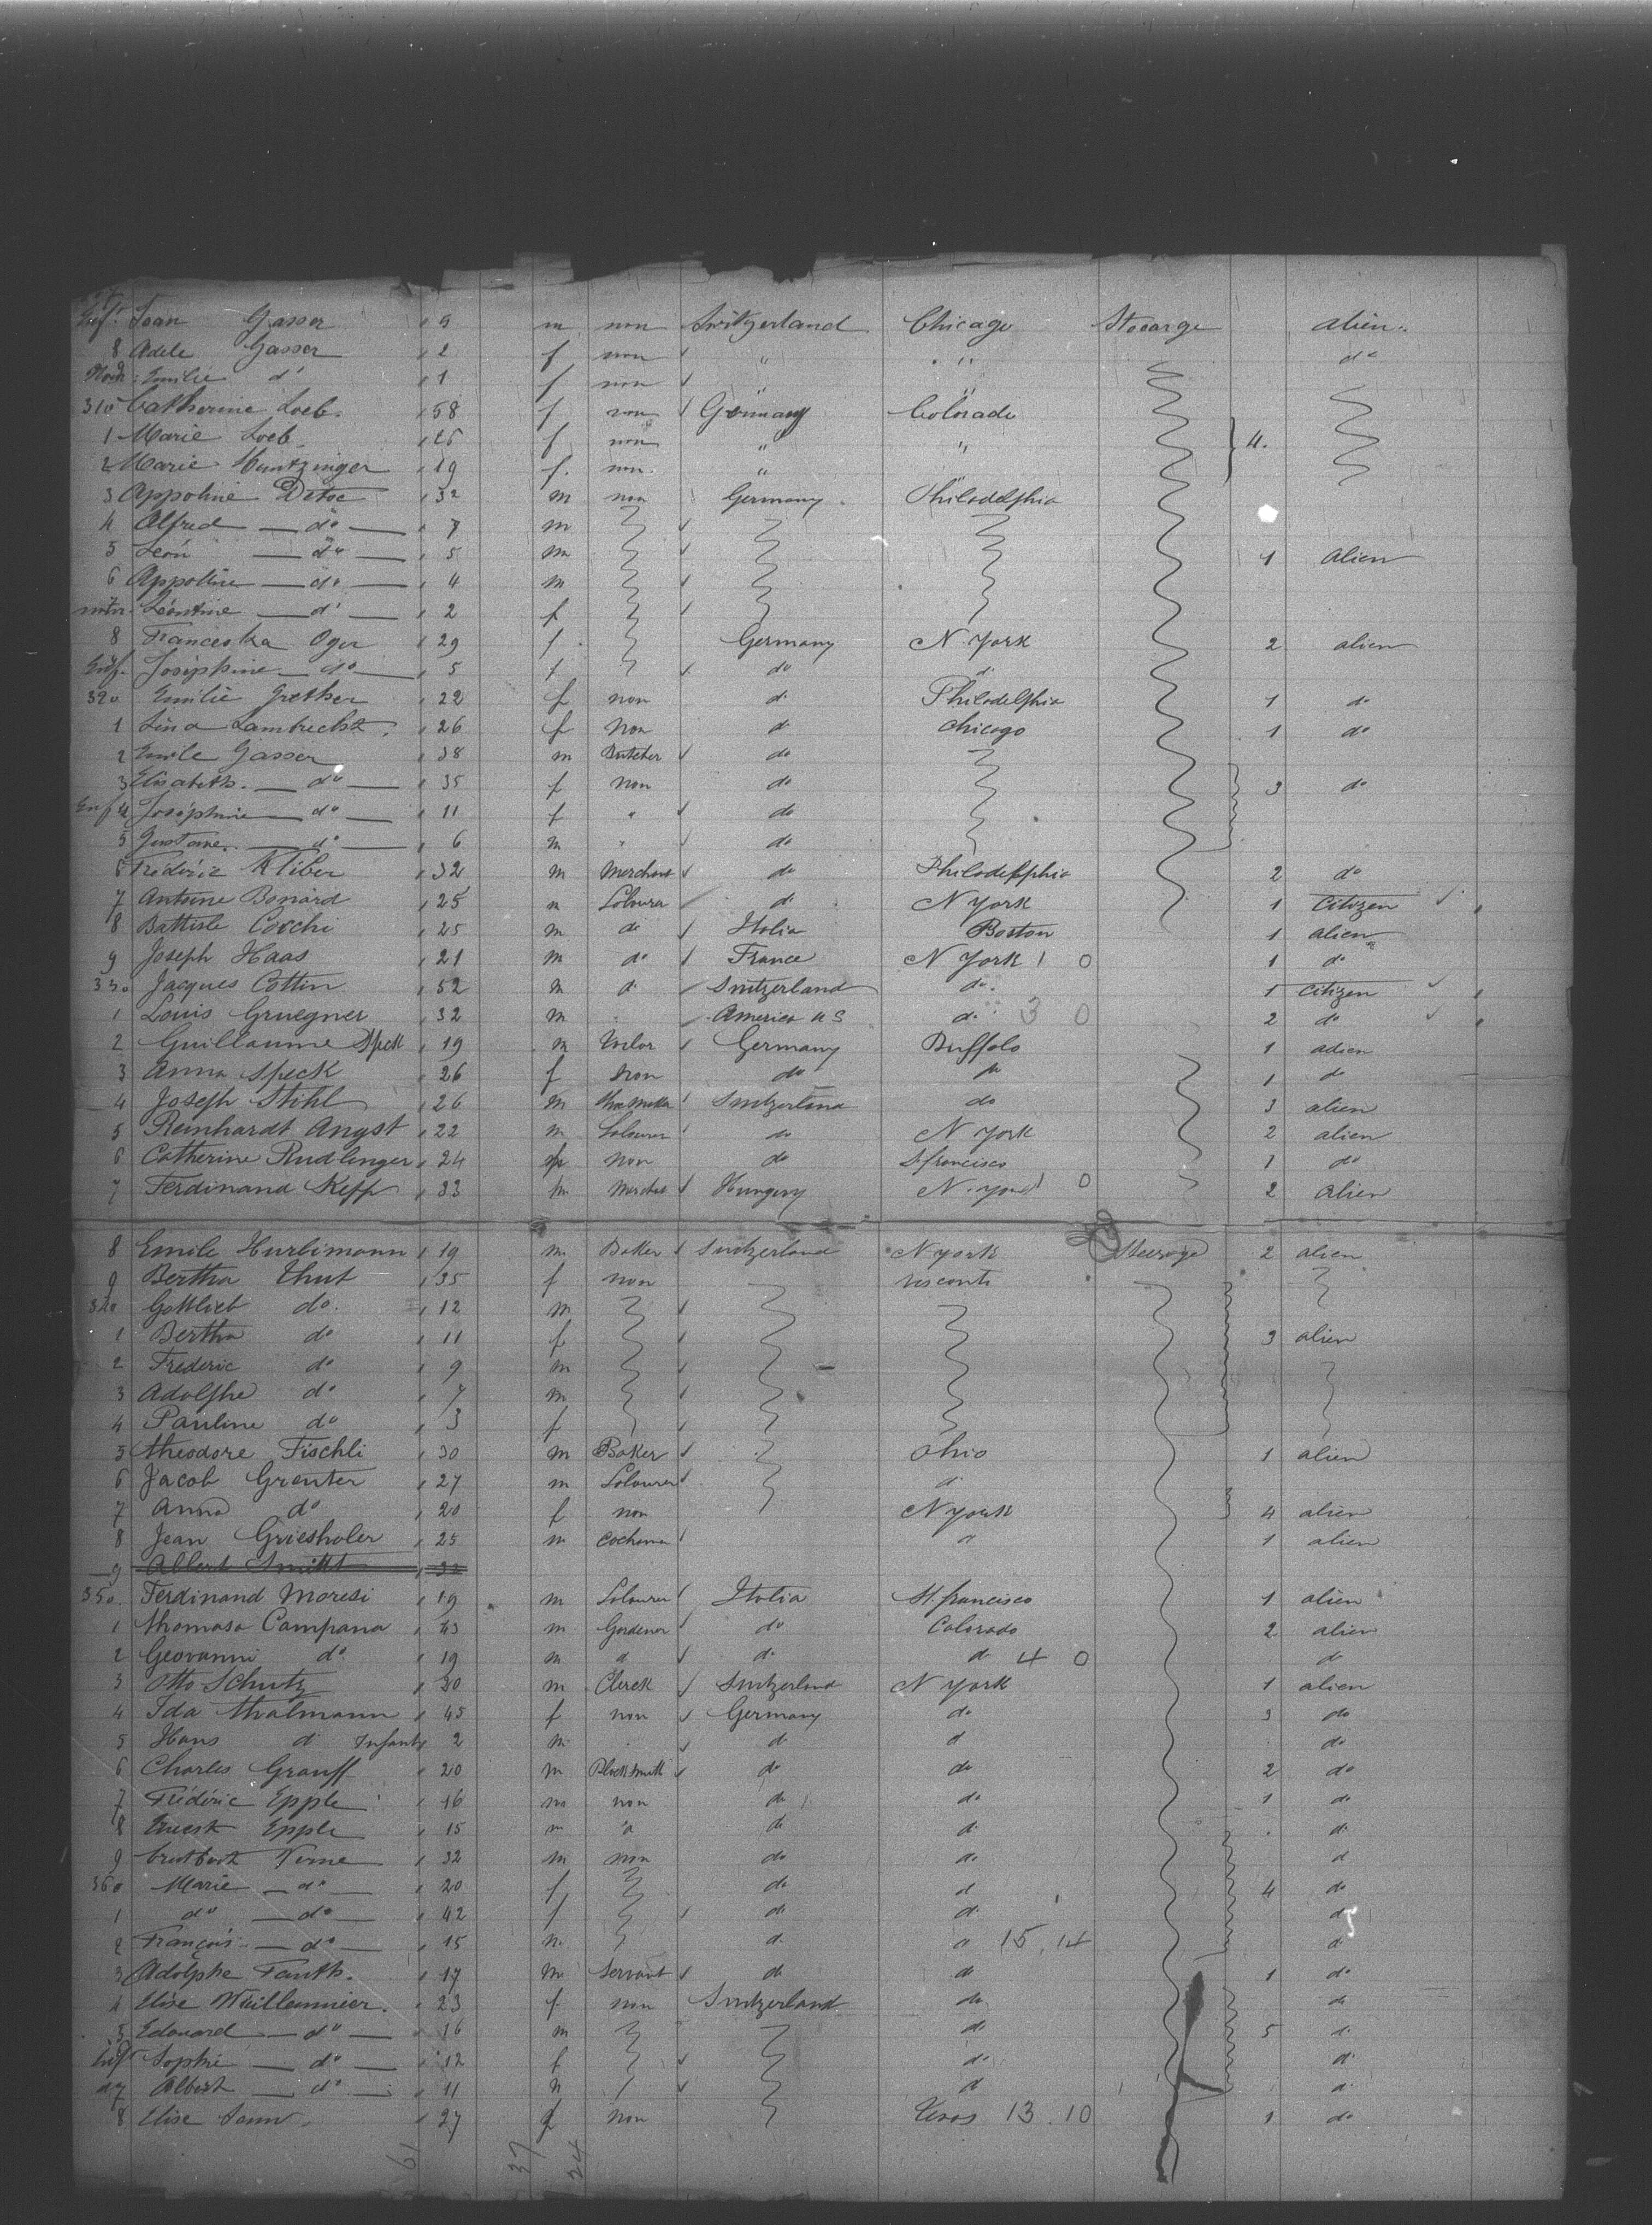 Inf. Jean Gasser 5 m non Switzerland Chicago Steearge alien
8 Adele Gasser 2 f non " " do
Emilie do 1 f non " "
310 Catherine Loeb. 58 f non Germany Colorado
1 Marie Loeb. 26 f non " " 4.
2 Marie Huntzinger 19 f. non. "
3 Appoline Ditoe 32 m non Germany Philadelphia
4 Alfred do 7 m
5 Léon do 5 m 1 alien
6 Appoline do 4 m
Léontine do 2 f
8 Franceska Oger 29 f Germany N. York 2 alien
Inf. Joséphine do 5 f do d
320 Emilie Grether 22 f non d Philadelphia 1 do
1 Lina Lambrecht 26 f non d Chicago 1 do
2 Emile Gasser 38 m Butcher do
3 Elisabeth. do 35 f non do 3 do
Inf 4 Joséphine do 11 f " do
5 Gustave. do 6 m " do
6 Frédéric Kliber 32 m Merchant do Philadelphia 2 do
7 Antoine Bonard 25 m Labourer d N York 1 Citizen
8 Battiste Cocchi 25 m do Italia Boston 1 alien
9 Joseph Haas 21 m do France N York 1 0 1 do
330 Jacques Cottin 52 m d Switzerland do. 1 Citizen
1 Louis Gruegner 32 m America U S d. 3 0 2 do
2 Guillaume Speck 19 m Germany Buffalo 1 alien
3 Anna Speck 26 f non do do 1 do
4 Joseph Stihl 26 m Switzerland do 3 alien
5 Reinhardt Angst 22 m Labourer do N York 2 alien
6 Catherine Rudlinger 24 f non do S. francisco 1 do
7 Ferdinand Kepp 33 m Hungery N. York 0 2 alien
8 Emile Hurlimann 19 m. Baker Switzerland N york Steerage 2 alien
9 Bertha Thut 35 f non visconti
Gottlieb do. 12 m
1 Bertha do 11 f 3 alien
2 Frederic do 9 m
3 Adolphe do 7 m
4 Pauline do 3 f
5 theodore Fischli 30 m Baker Ohio 1 alien
6 Jacob Greuter 27 m Labourer d
7 Anna do 20 f non N york 4 alien
8 Jean Griesholer 25 m Cochman d 1 alien
9 Albert Smitt 32
350. Ferdinand Moresi 19 m Labourer Italia St. francisco 1 alien
1 thomaso Campana 43 m Gardener do Colorado 2 alien
2 Geovanni do 19 m d d. d 4 0 d
3 Otto Schutz 30 m Clerck Switzerland N York 1 alien
4 Ida thalmann 45 f non Germany do 3 do
5 Hans d Infant 2 m. d d do
6 Charles Grauff 20 m Blacksmith do do 2 do
7 Frédéric Epple 16 m non do do 1 do
8 Ernest Epple 15 m d do d. d.
9 32 m non do do d
360 Marie do 20 f do d 4 do
1 do do 42 f do d. d
2 François do 15 m. d. d 15.14 d.
3 Adolphe Fauth. 17 m Servant do do 1 do
4 Elise Wuillemmier. 23 f non Switzerland do do
5 Edouard do 16 m d. 5 d.
Inf Sophie do 12 f d. d.
7 Albert do 11 m d d.
8 Elise 27 f non Texas 13.10 1 do
61 37 24